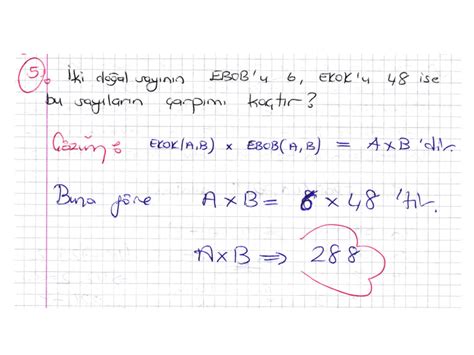 5. İki doğal sayının EBOB'u 6, EKOK'u 48 ise
bu sayıların çarpımı kaçtır?
Çözüm: EKOK(A,B) x EBOB(A,B) = AxB 'dir.
Buna göre AxB = 6 x 48 'tir.
AxB ⇒ 288